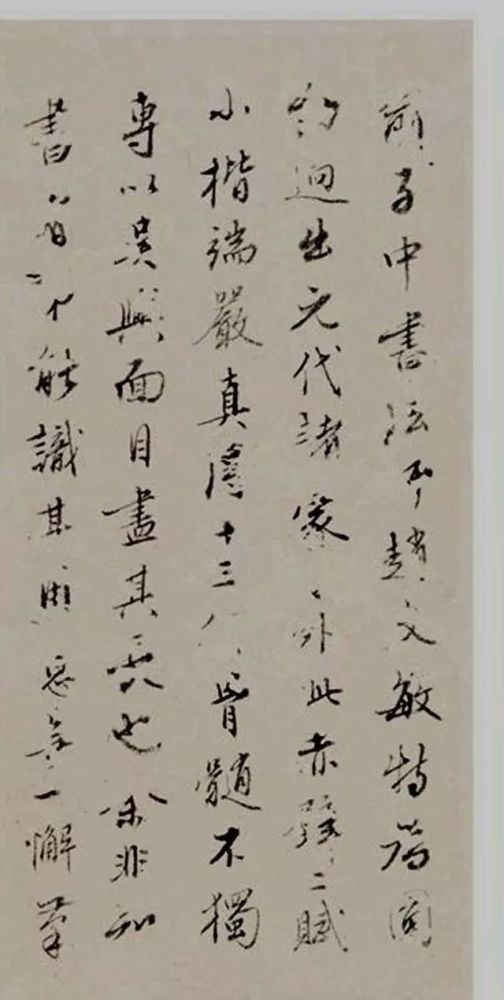 俞子中書法即趙文敏特為圓
勁迥出元代諸家之外此赤壁二賦
小楷端嚴真得十三行骨髓不獨
專以吳興面目盡其長也余非知
書者亦能識其用意無一懈筆